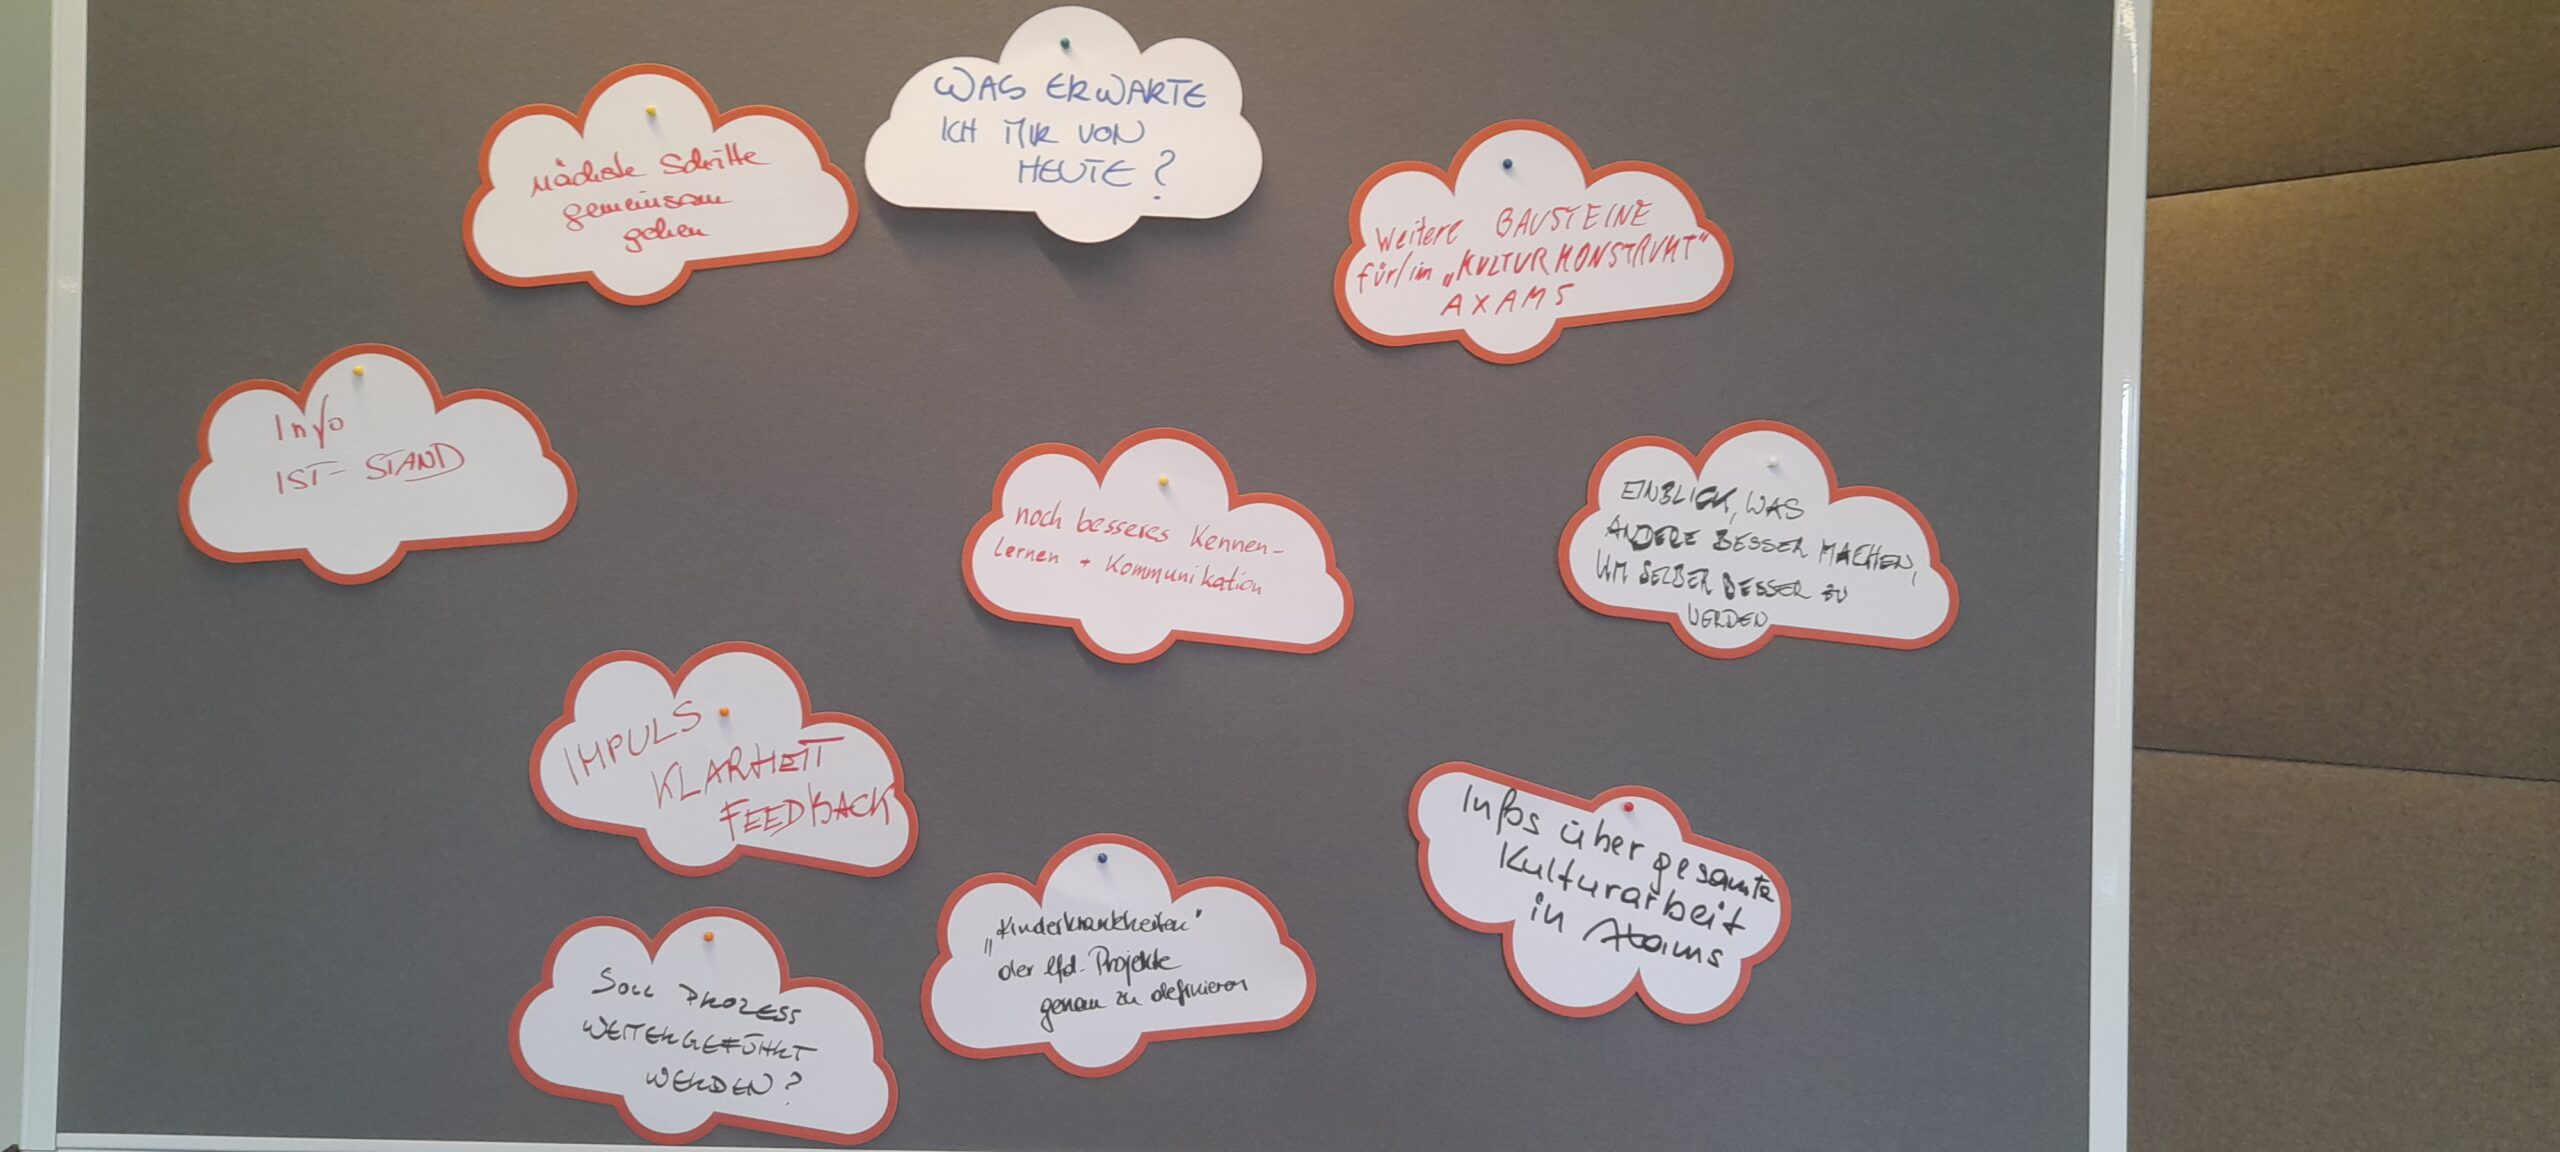 WAS ERWARTE
ICH MIR VON
HEUTE?
nächste Schritte
gemeinsam
gehen
Weitere BAUSTEINE
für/im „KULTURKONSTRUKT"
AXAMS
Info
IST-STAND
noch besseres Kennen-
lernen + Kommunikation
EINBLICK, WAS
ANDERE BESSER MACHEN,
UM SELBER BESSER ZU
WERDEN
IMPULS
KLARHEIT
FEEDBACK
Infos über gesamte
Kulturarbeit
in Axams
„Kinderkrankheiten"
der lfd. Projekte
genau zu definieren
SOLL PROZESS
WEITERGEFÜHRT
WERDEN?